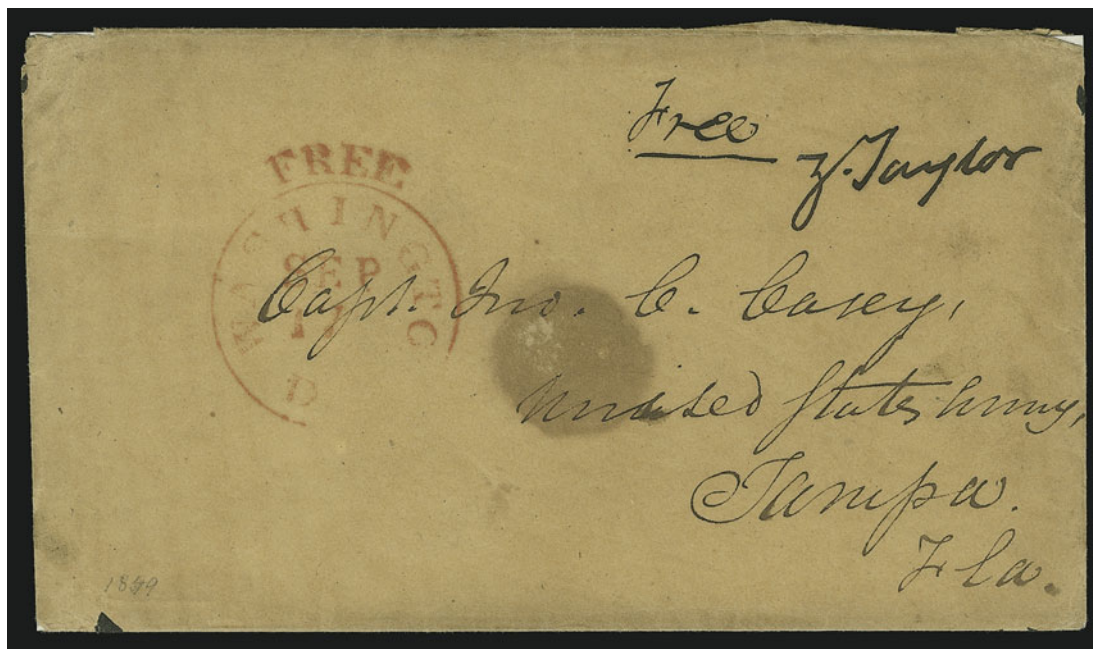 Free
Z. Taylor
FREE
WASHINGTO
SEP
D
Capt. Jno. C. Casey,
United States Army,
Tampa.
Fla.
1849